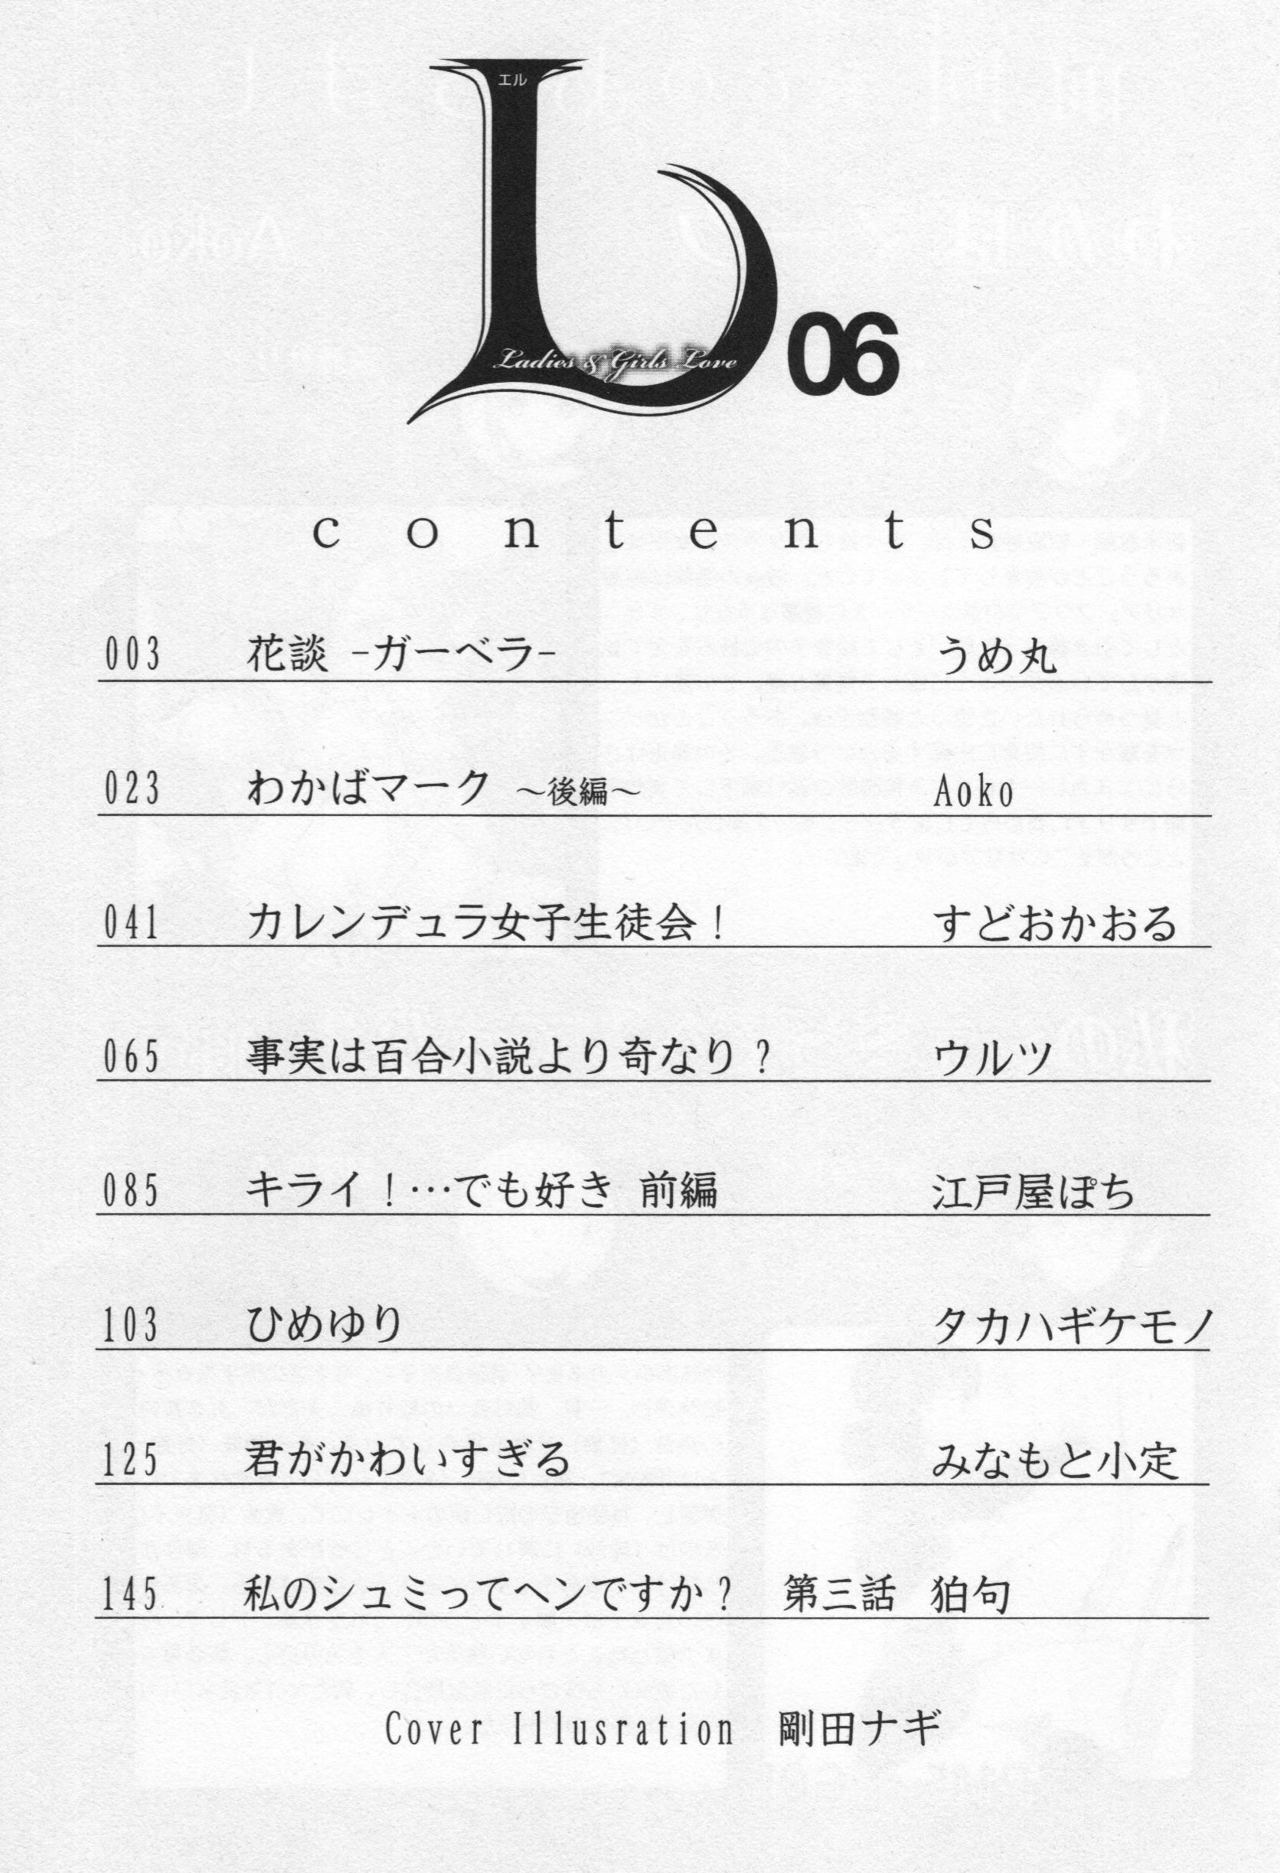 エル
Ladies & Girls Love
06
contents
003 花談 -ガーベラ- うめ丸
023 わかばマーク ～後編～ Aoko
041 カレンデュラ女子生徒会！ すどおかおる
065 事実は百合小説より奇なり？ ウルツ
085 キライ！…でも好き 前編 江戸屋ぽち
103 ひめゆり タカハギケモノ
125 君がかわいすぎる みなもと小定
145 私のシュミってヘンですか？ 第三話 狛句
Cover Illusration 剛田ナギ